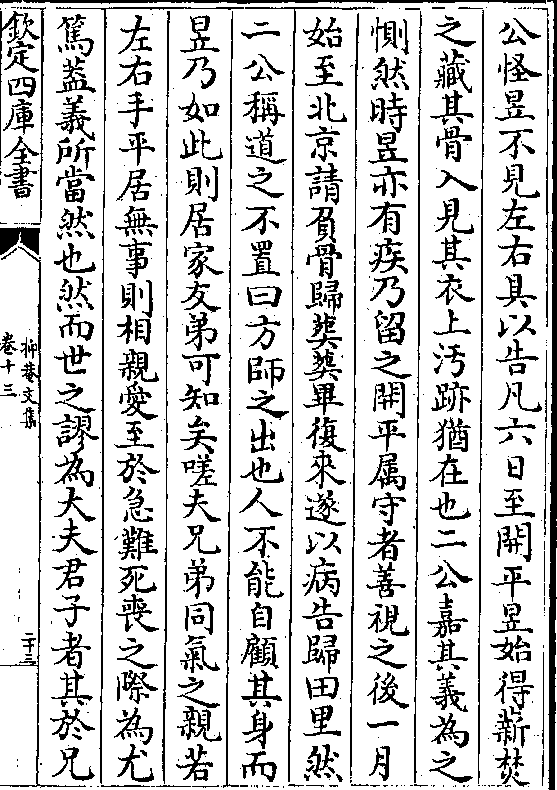 公怪昱不見左右具以告凡六日至開平昱始得薪焚
之藏其骨入見其衣上汚跡猶在也二公嘉其義為之
惻然時昱亦有疾乃留之開平属守者善視之後一月
始至北京請負骨歸葬葬畢復來遂以病告歸田里然
二公稱道之不置曰方師之出也人不能自顧其身而
昱乃如此則居家友弟可知矣嗟夫兄弟同氣之親若
左右手平居無事則相親愛至於急難死喪之際為尤
篤葢義所當然也然而世之謬為大夫君子者其於兄
欽定四庫全書
抑菴文集
卷十三
二十三